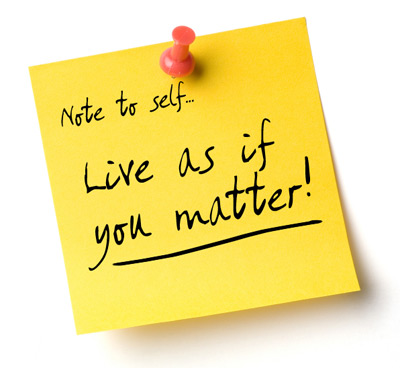 Note to self...
Live as if
you matter!